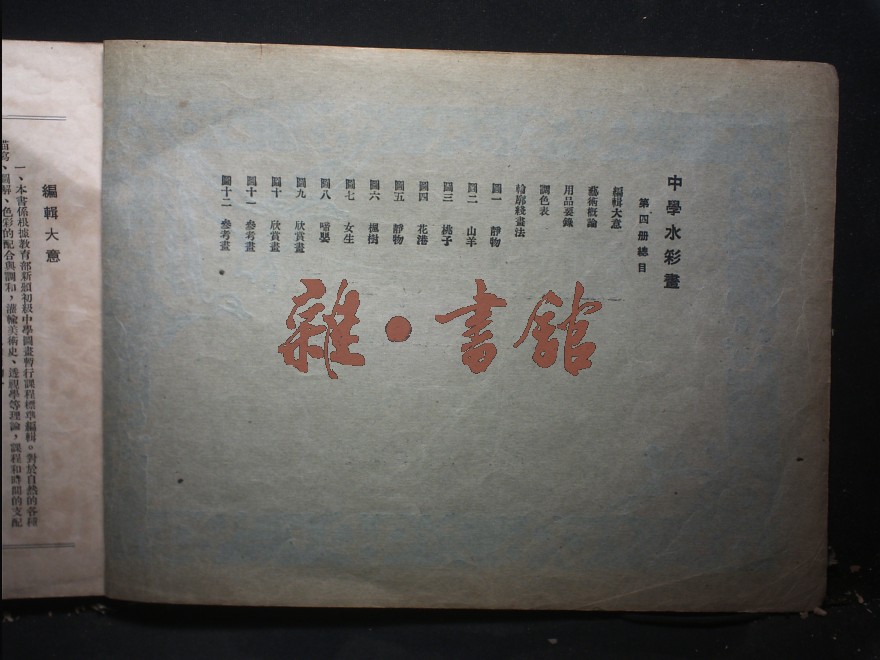 中學水彩畫
第四册總目
編輯大意
藝術概論
用品要錄
調色表
輪廓綫畫法
圖一 靜物
圖二 山羊
圖三 桃子
圖四 花港
圖五 靜物
圖六 楓樹
圖七 女生
圖八 嗜嬰
圖九 欣賞畫
圖十 欣賞畫
圖十一 參考畫
圖十二 參考畫
雜·書館
編輯大意
一、本書係根據教育部新頒初級中學圖畫暫行課程標準編輯。對於自然的各種
描寫、圖解、色彩的配合與調和，灌輸美術史、透視學等理論，課程和時間的支配